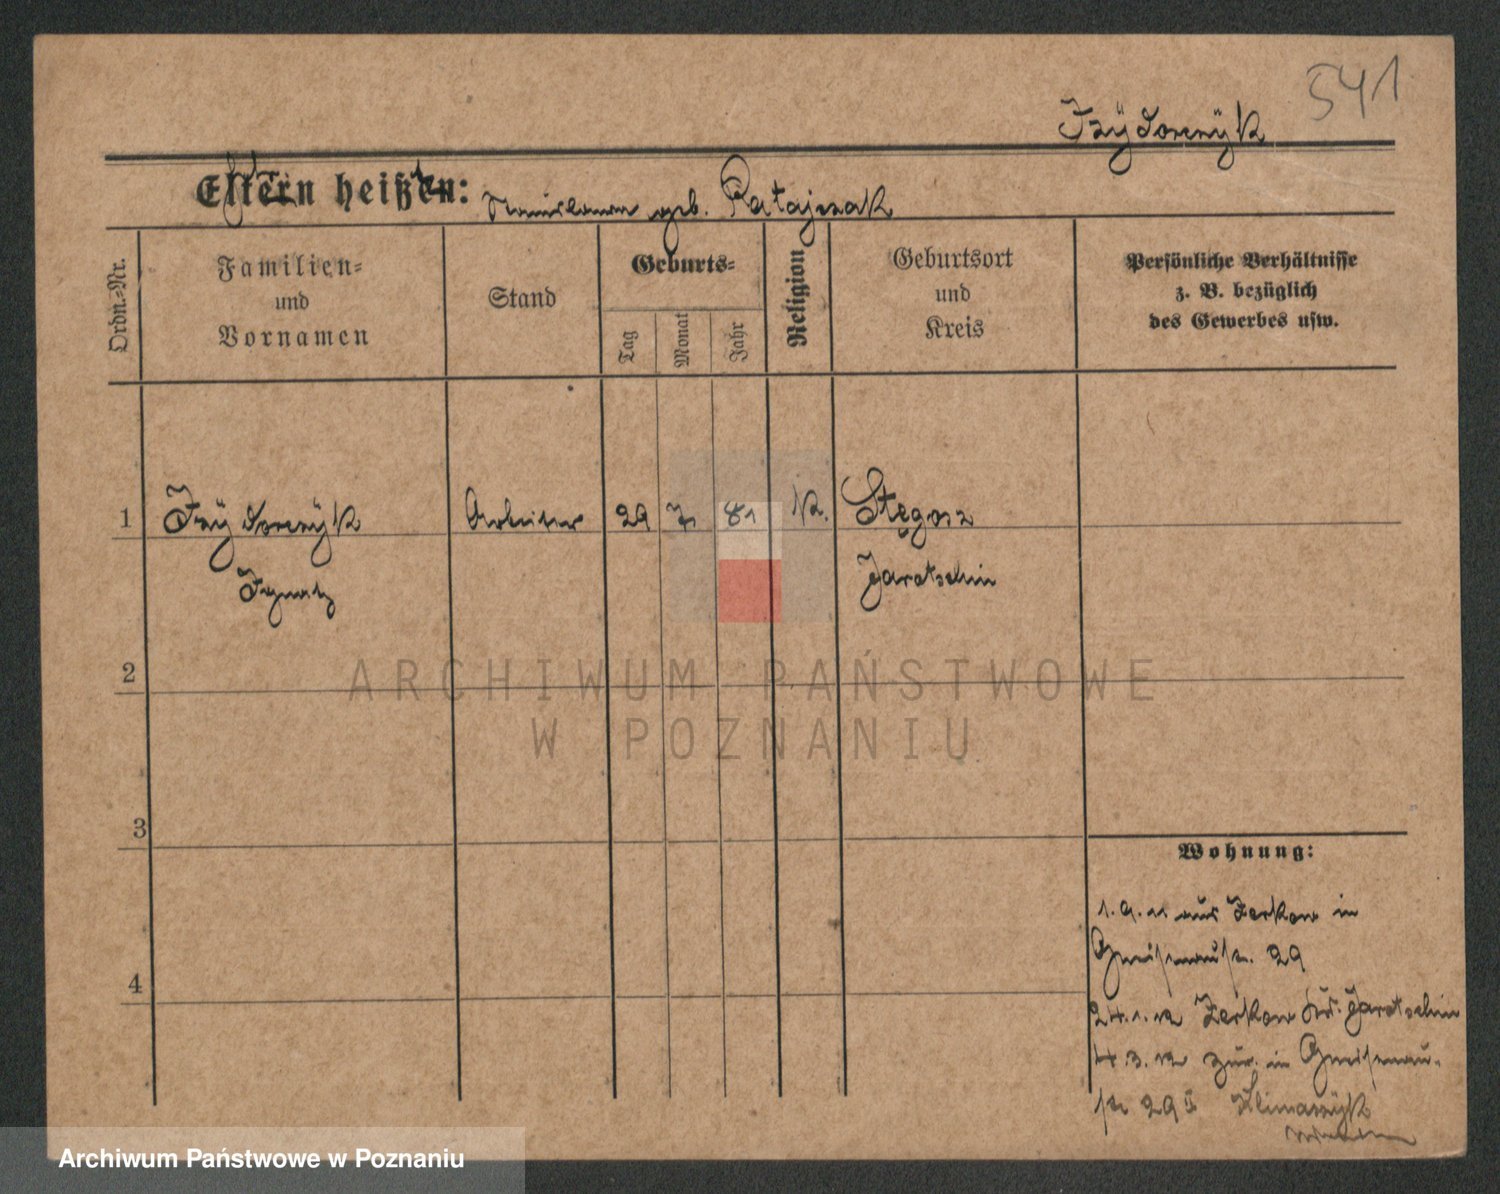 541
Izÿdorczÿk
Eltern heißen:
Stanislawa geb. Ratajczak
Ordn.-Nr.
Familien-
und
Vornamen
Stand
Geburts-
Tag
Monat
Jahr
Religion
Geburtsort
und
Kreis
Persönliche Verhältnisse
z. B. bezüglich
des Gewerbes usw.
1 Izÿdorczÿk Arbeiter 29 7 81 K. Stęgosz
Ignatz Jarotschin
2
ARCHIWUM PAŃSTWOWE
W POZNANIU
3
Wohnung:
1.9.11 aus Zerkow in
Gneisenaustr. 29
4
24.1.12 Zerkow Krs. Jarotschin
4.3.12 zur. in Gneisenau-
str 29 II Klimaszÿk
Archiwum Państwowe w Poznaniu